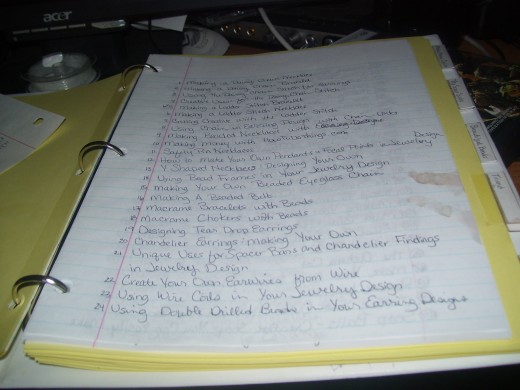 acer
1 Making a Daisy Chain Necklace
2 Making a Daisy Chain Bracelet
3 Using the Daisy Chain Stitch Earrings
4 Stitch
5 Making a Ladder Stitch Bracelet
6 Making a Ladder Stitch Necklace
7 Being Creative with the Ladder Stitch
8 Using Chain in Earring Design
9 Making Beaded Necklaces with
10 Making money with
11 Safety Pin Necklaces
12 How to Make Your Own Pendants + Focal Points in Jewelry Design
13 V Shaped Necklaces: Designing Your Own
14 Using Bead Frames in Your Jewelry Design
15 Making Your Own Beaded Eyeglass Chain
16 Making A Beaded Belt
17 Macrame Bracelets with Beads
18 Macrame Chokers with Beads
19 Designing Tear Drop Earrings
20 Chandelier Earrings: Making Your Own
21 Unique Uses for Spacer Bars and Chandelier Findings
in Jewelry Design
22 Create Your Own Earwires from Wire
23 Using Wire Coils in Your Jewelry Design
24 Using Double Drilled Beads in Your Earring Designs